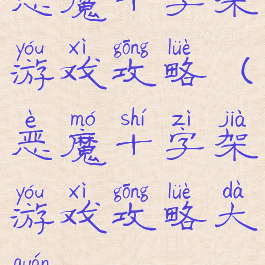 恶魔十字架
yóu xì gōng lüè
游戏攻略（
è mó shí zì jià
恶魔十字架
yóu xì gōng lüè dà
游戏攻略大
quán